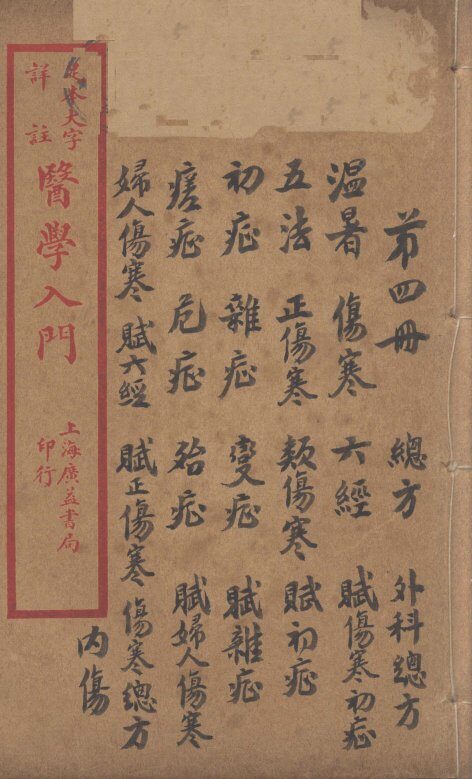 苐四冊 總方 外科總方
温暑 傷寒 六經 賦傷寒初症
五法 正傷寒 類傷寒 賦初症
初症 雜症 變症 賦雜症
瘥症 危症 殆症 賦婦人傷寒
婦人傷寒 賦六經 賦正傷寒 傷寒總方
内傷
足本大字
詳註
醫學入門
上海廣益書局
印行